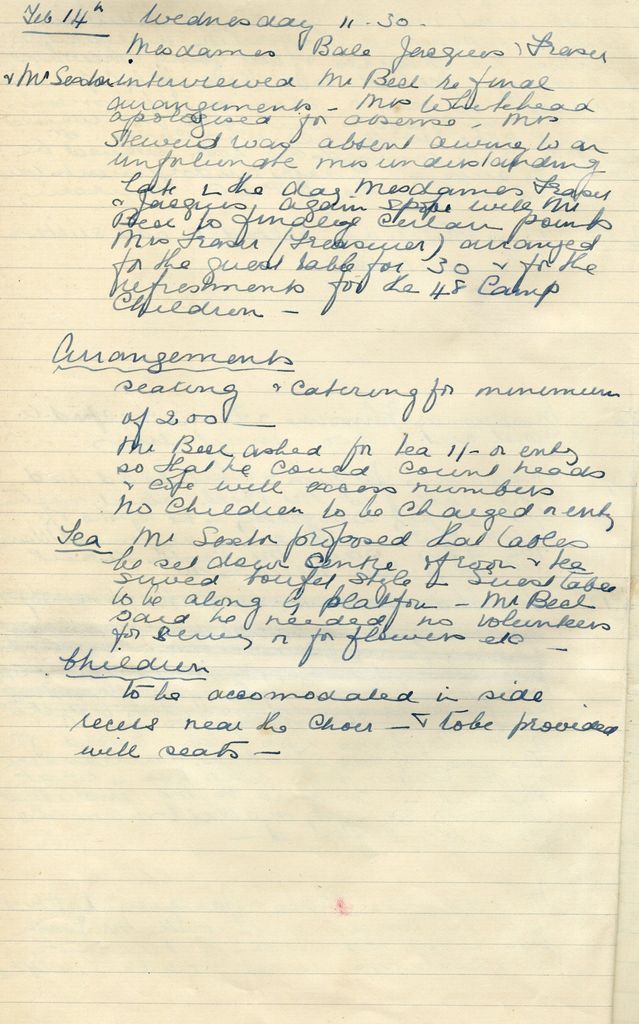 Feb 14th Wednesday 11.30.
Mesdames Bale Jacques, Fraser
& Mr Sexton interviewed Mr Beel re final
arrangements - Mrs Whitehead
apologised for absense - Mrs
Steward was absent owing to an
unfortunate misunderstanding
Late in the day Mesdames Fraser
& Jacques, again spoke with Mr
Beel to finalize certain points
Mrs Fraser (Treasurer) arranged
for the guest table for 30 & for the
refreshments for the 48 Camp
Children -
Arrangements
seating & Catering for minimum
of 200 -
Mr Beel asked for tea 1/- on entry
so that he could count heads
& cope with excess numbers
No Children to be charged on entry
Tea Mr Sexton proposed that tables
be set down Centre of room & tea
served buffet style - Guest table
to be along by platform - Mr Beel
said he needed no volunteers
for serving or for flowers etc -
Children
to be accomodated in side
recess near the Choir - & to be provided
with seats -